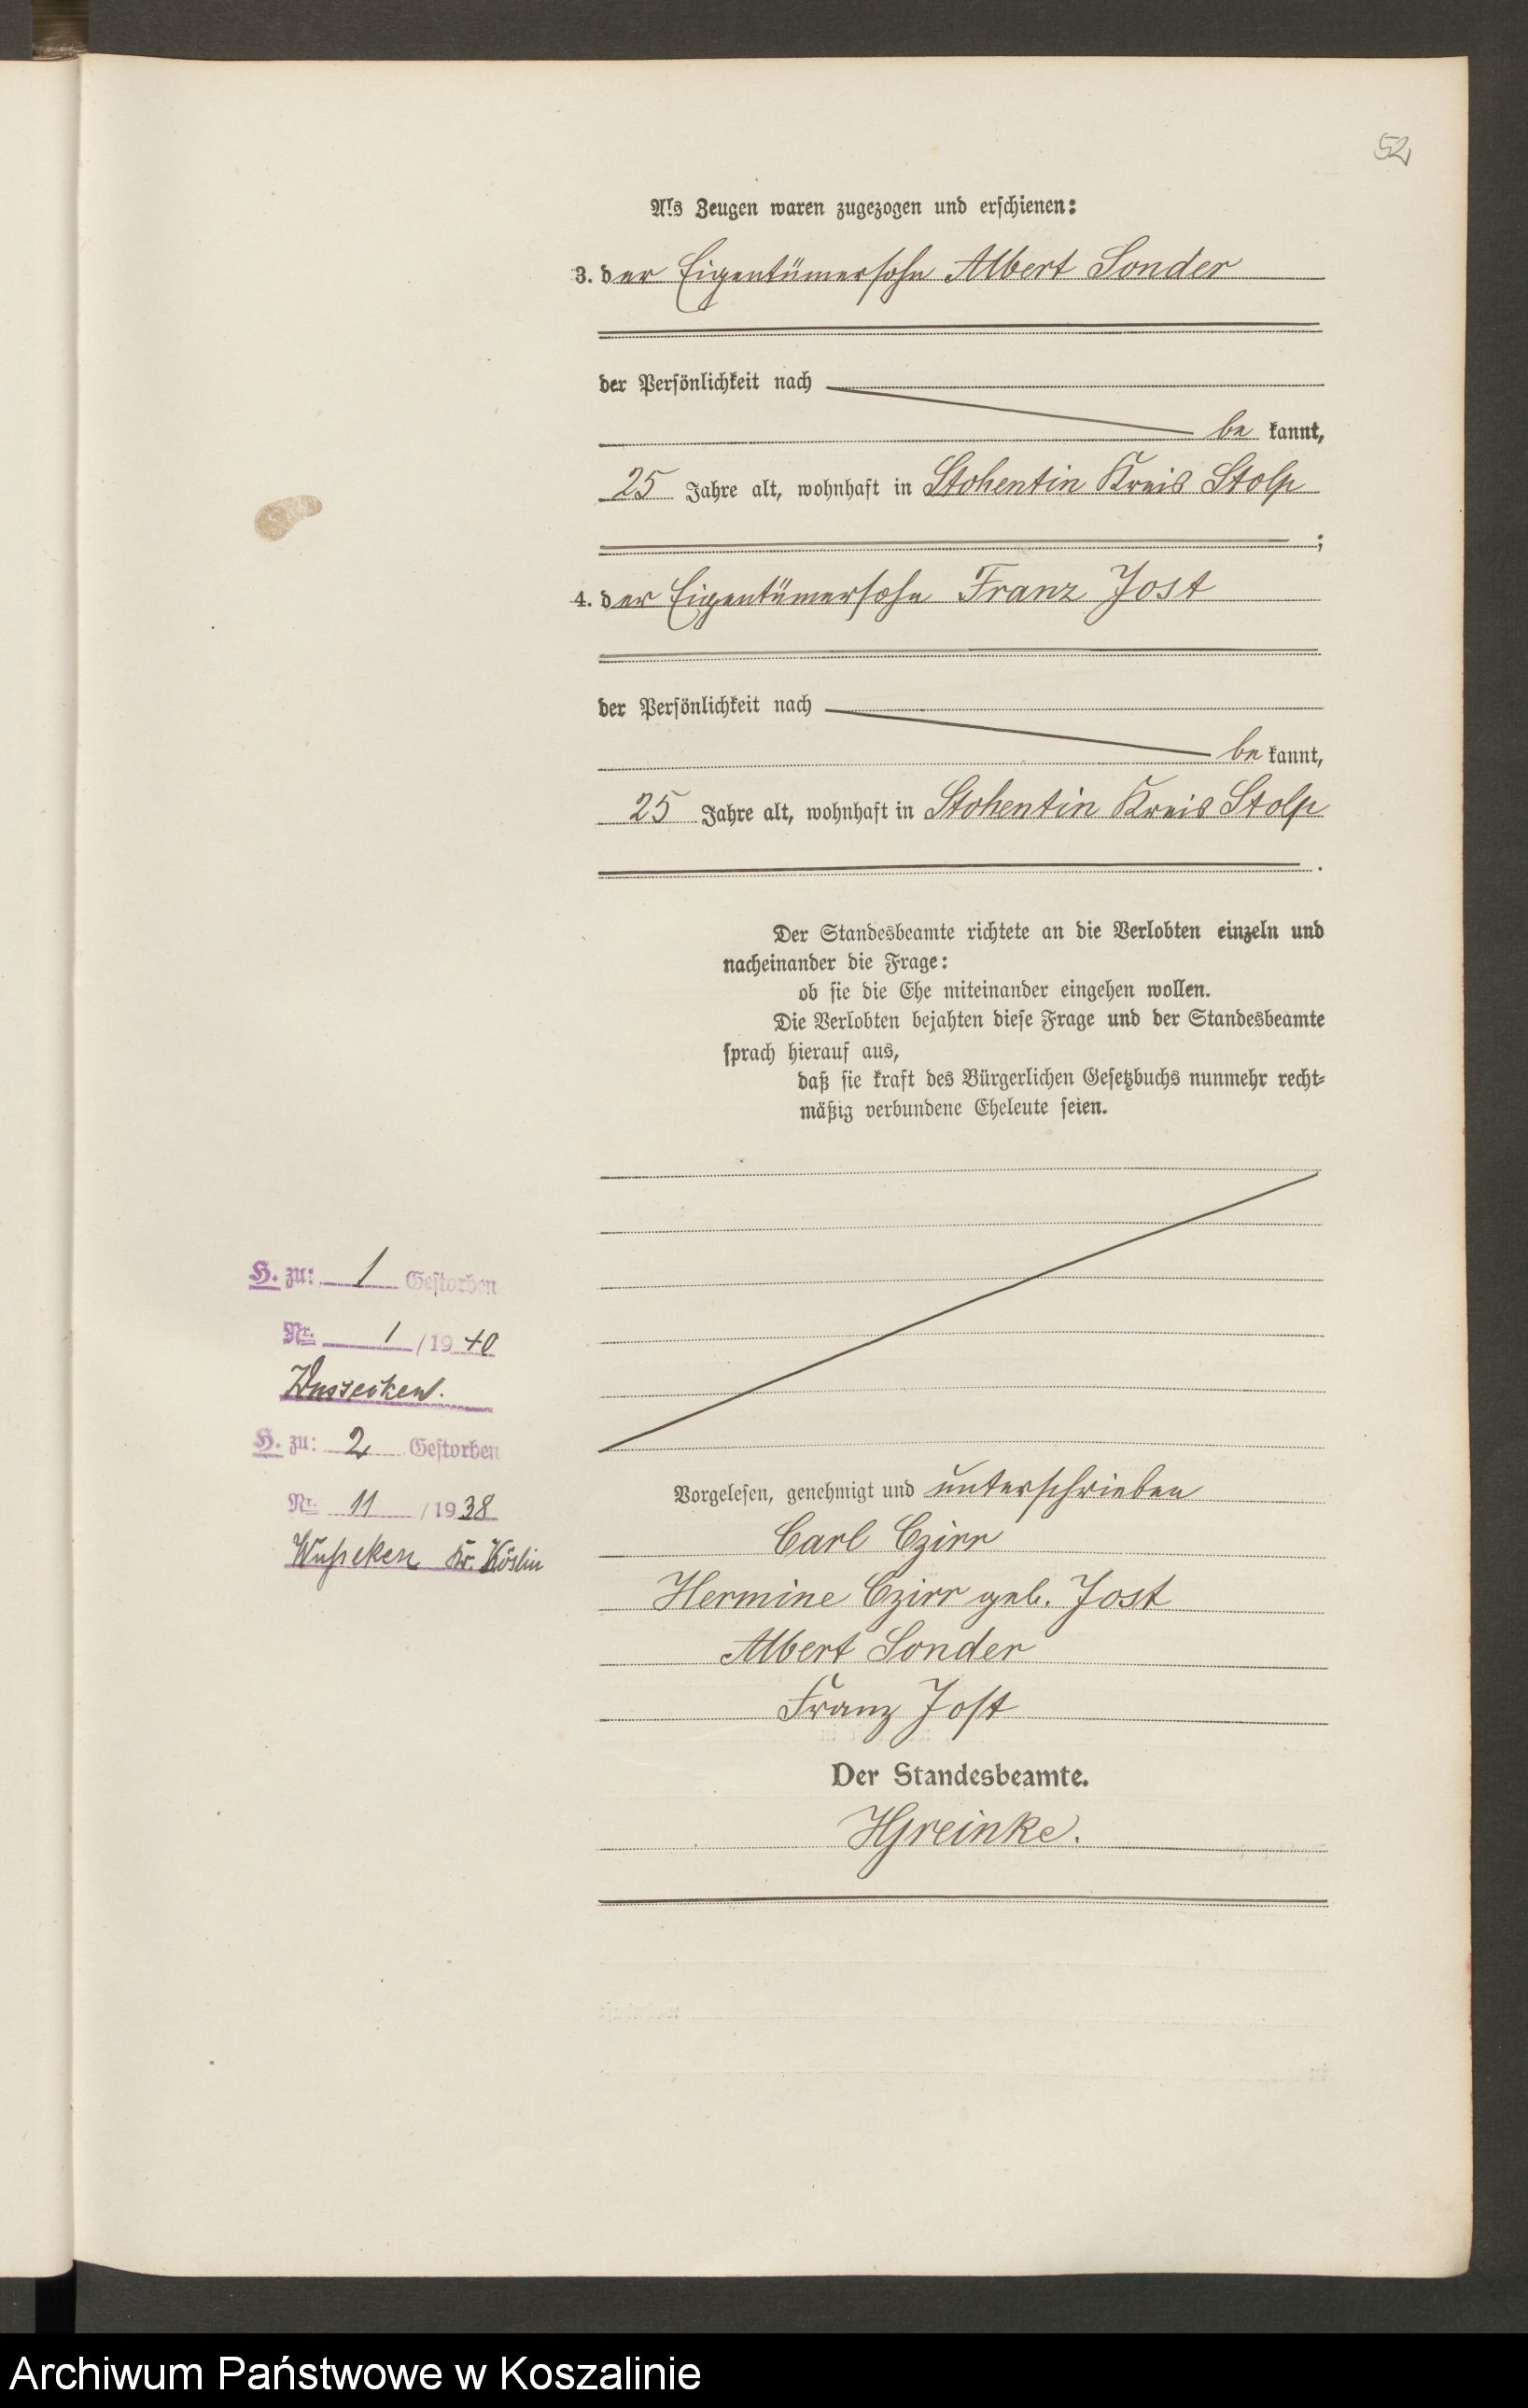 52
Als Zeugen waren zugezogen und erschienen:
3. der Eigentümersohn Albert Sonder
der Persönlichkeit nach
be kannt,
25 Jahre alt, wohnhaft in Stohentin Kreis Stolp
;
4. der Eigentümersohn Franz Jost
der Persönlichkeit nach
be kannt,
25 Jahre alt, wohnhaft in Stohentin Kreis Stolp
.
Der Standesbeamte richtete an die Verlobten einzeln und
nacheinander die Frage:
ob sie die Ehe miteinander eingehen wollen.
Die Verlobten bejahten diese Frage und der Standesbeamte
sprach hierauf aus,
daß sie kraft des Bürgerlichen Gesetzbuchs nunmehr recht-
mäßig verbundene Eheleute seien.
H. zu: 1 Gestorben
Nr. 1 /1940
Wussecken.
H. zu: 2 Gestorben
Nr. 11 /1938
Wußeken Kr. Köslin
Vorgelesen, genehmigt und unterschrieben
Carl Czirr
Hermine Czirr geb. Jost
Albert Sonder
Franz Jost
Der Standesbeamte.
HGreinke.
Archiwum Państwowe w Koszalinie